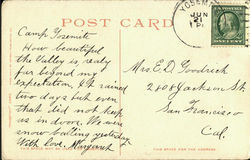 POST CARD
YOSEMI
JUN
Camp Yosemite
How beautiful
the Valley is, realy
far beyond my
expectation. It rained
two days but even
that did not keep
us in doors. We were
snow balling yesterday
With Love. Margaret
Mrs. E. D. Goodrich
2408 Jackson St
San Francisco
Cal.
THIS SPACE FOR THE ADDRESS